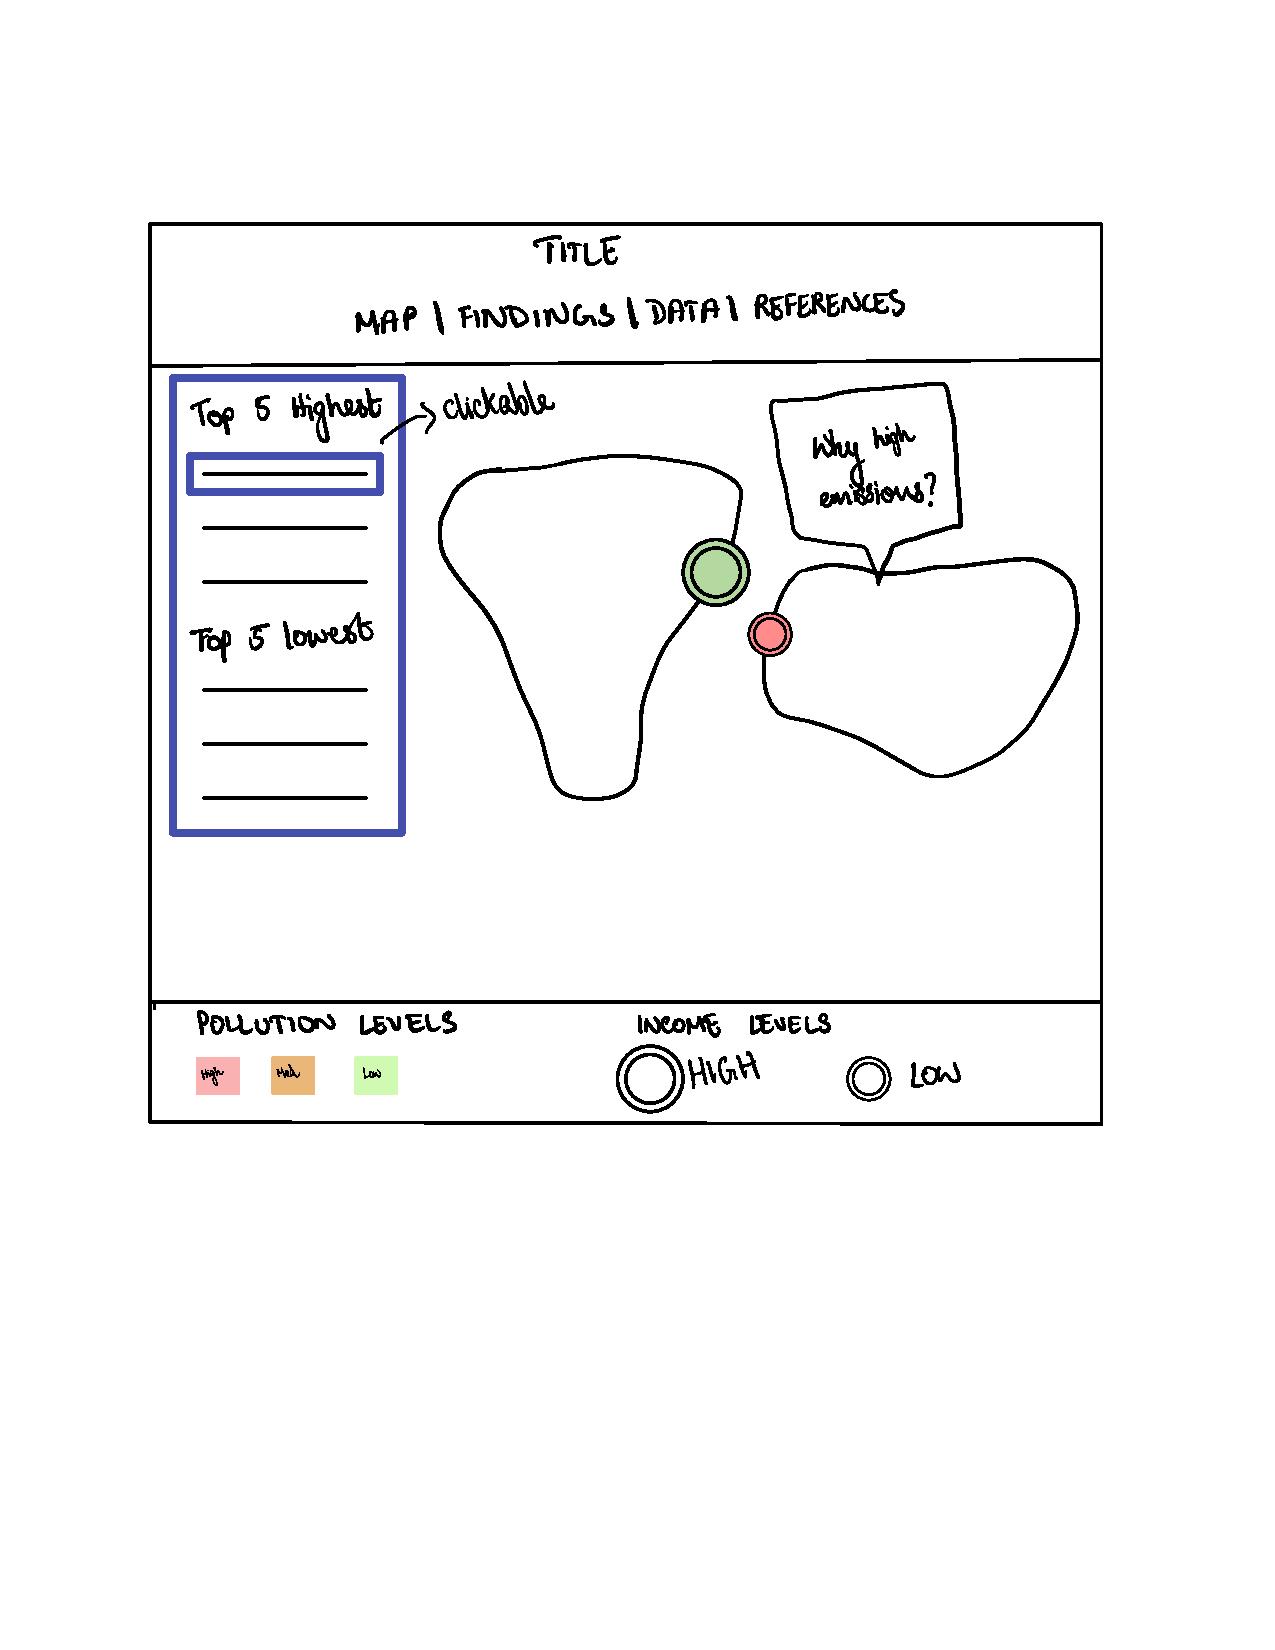 TITLE
MAP | FINDINGS | DATA | REFERENCES
Top 5 Highest
clickable
Why high
emissions?
Top 5 lowest
POLLUTION LEVELS
High
Med
Low
INCOME LEVELS
HIGH
LOW